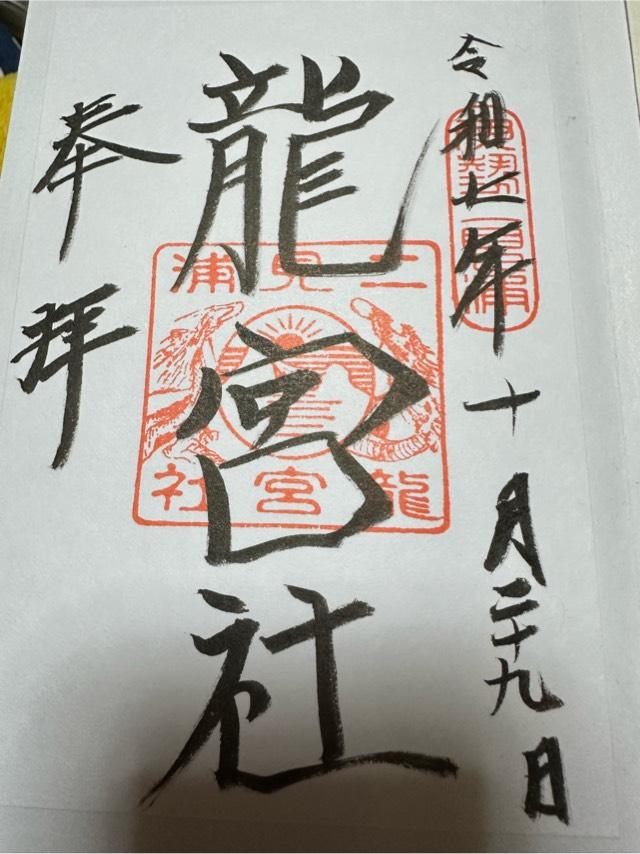 令和七年十月二十九日
龍宮社
奉拝
二見浦
龍宮社